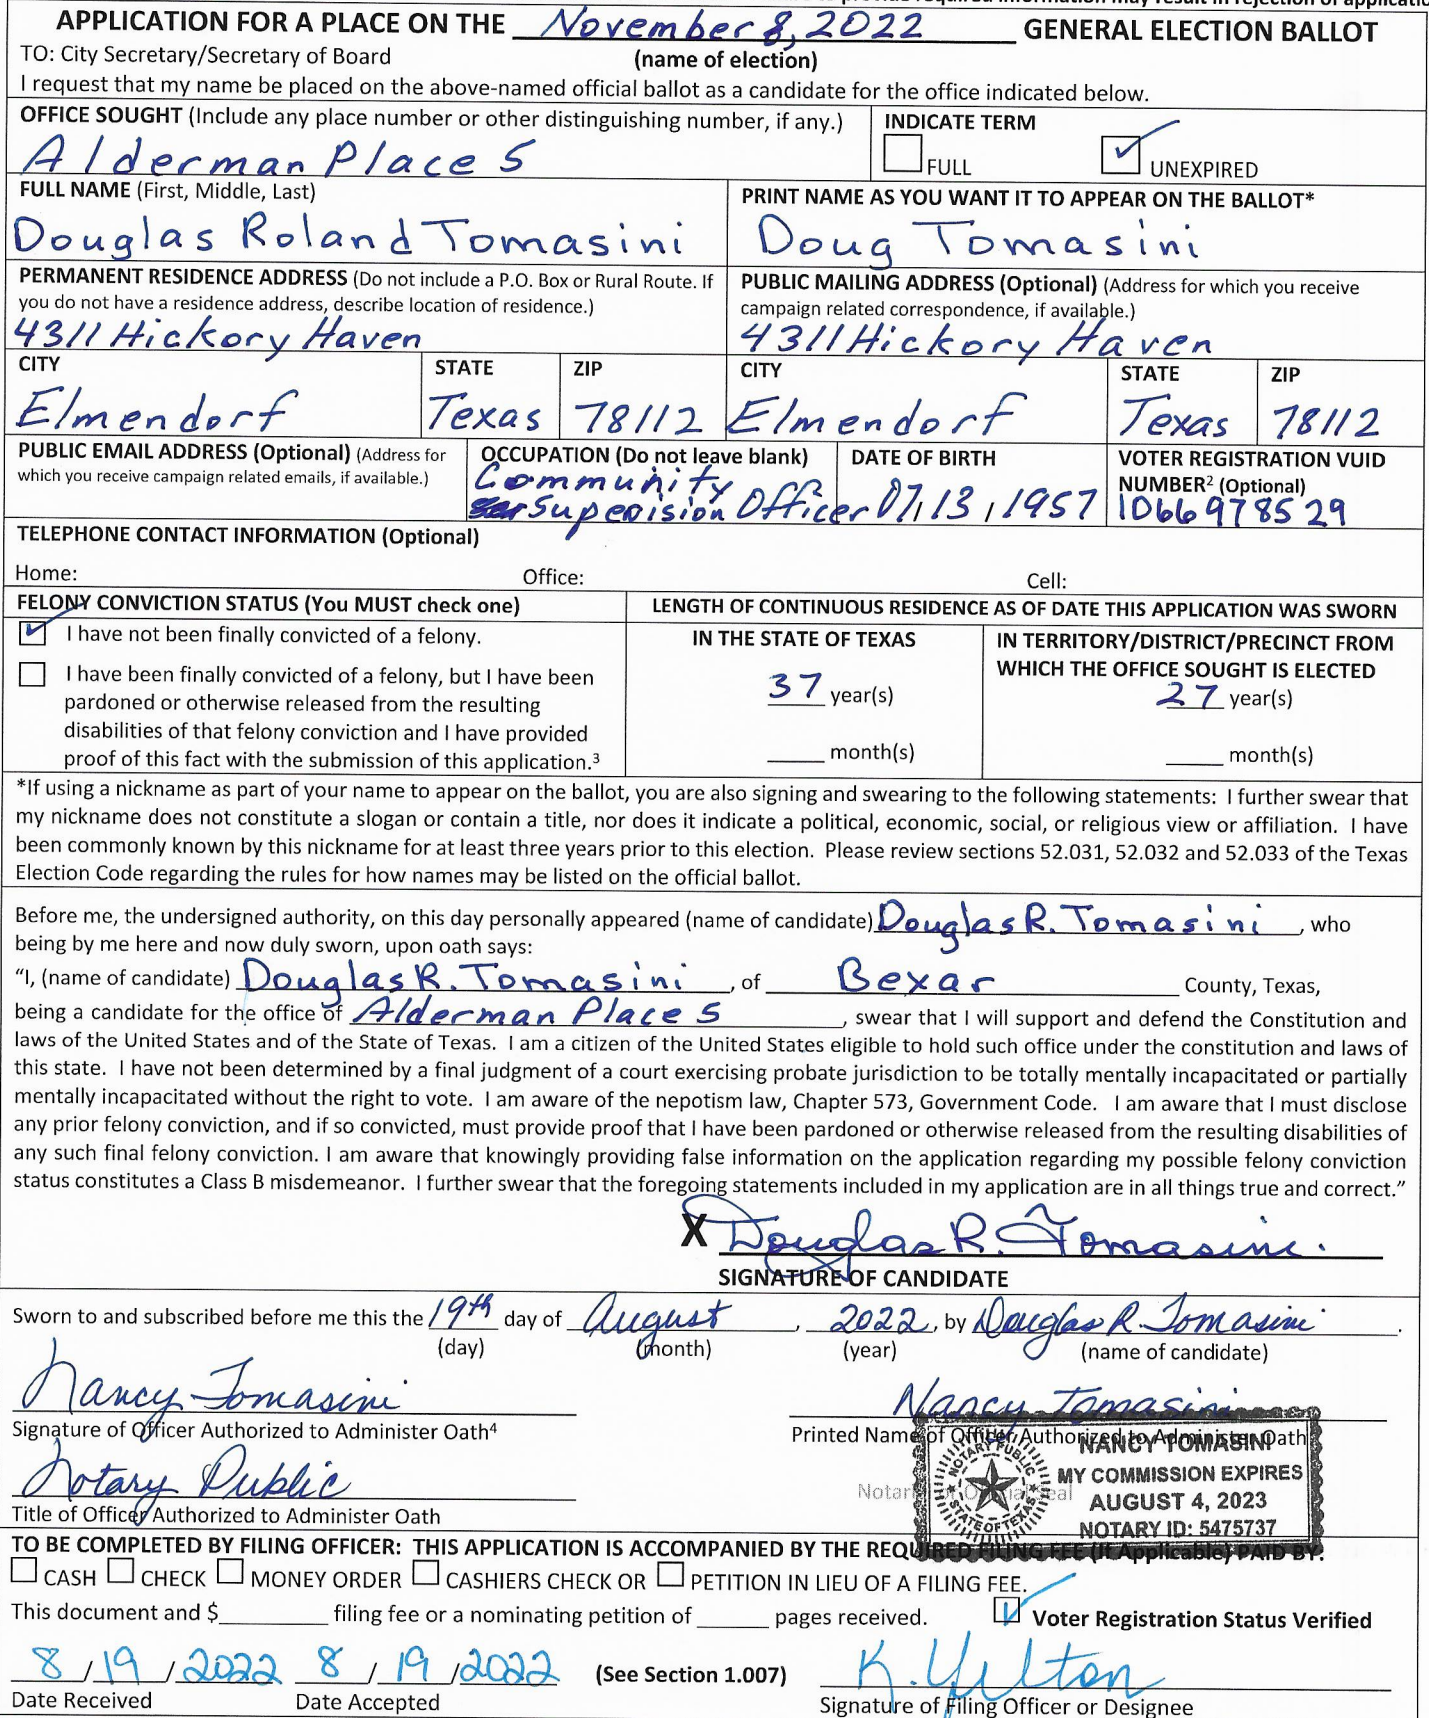 APPLICATION FOR A PLACE ON THE November 8, 2022 GENERAL ELECTION BALLOT
TO: City Secretary/Secretary of Board (name of election)
I request that my name be placed on the above-named official ballot as a candidate for the office indicated below.
OFFICE SOUGHT (Include any place number or other distinguishing number, if any.)
Alderman Place 5
INDICATE TERM
FULL
UNEXPIRED
FULL NAME (First, Middle, Last)
Douglas Roland Tomasini
PRINT NAME AS YOU WANT IT TO APPEAR ON THE BALLOT*
Doug Tomasini
PERMANENT RESIDENCE ADDRESS (Do not include a P.O. Box or Rural Route. If
you do not have a residence address, describe location of residence.)
4311 Hickory Haven
PUBLIC MAILING ADDRESS (Optional) (Address for which you receive
campaign related correspondence, if available.)
4311 Hickory Haven
CITY STATE ZIP CITY STATE ZIP
Elmendorf Texas 78112 Elmendorf Texas 78112
PUBLIC EMAIL ADDRESS (Optional) (Address for
which you receive campaign related emails, if available.)
OCCUPATION (Do not leave blank)
Community
Supervision Officer
DATE OF BIRTH
07, 13, 1957
VOTER REGISTRATION VUID
NUMBER² (Optional)
1066978529
TELEPHONE CONTACT INFORMATION (Optional)
Home: Office: Cell:
FELONY CONVICTION STATUS (You MUST check one)
I have not been finally convicted of a felony.
I have been finally convicted of a felony, but I have been
pardoned or otherwise released from the resulting
disabilities of that felony conviction and I have provided
proof of this fact with the submission of this application.³
LENGTH OF CONTINUOUS RESIDENCE AS OF DATE THIS APPLICATION WAS SWORN
IN THE STATE OF TEXAS
37 year(s)
month(s)
IN TERRITORY/DISTRICT/PRECINCT FROM
WHICH THE OFFICE SOUGHT IS ELECTED
27 year(s)
month(s)
*If using a nickname as part of your name to appear on the ballot, you are also signing and swearing to the following statements: I further swear that
my nickname does not constitute a slogan or contain a title, nor does it indicate a political, economic, social, or religious view or affiliation. I have
been commonly known by this nickname for at least three years prior to this election. Please review sections 52.031, 52.032 and 52.033 of the Texas
Election Code regarding the rules for how names may be listed on the official ballot.
Before me, the undersigned authority, on this day personally appeared (name of candidate) Douglas R. Tomasini, who
being by me here and now duly sworn, upon oath says:
"I, (name of candidate) Douglas R. Tomasini, of Bexar County, Texas,
being a candidate for the office of Alderman Place 5, swear that I will support and defend the Constitution and
laws of the United States and of the State of Texas. I am a citizen of the United States eligible to hold such office under the constitution and laws of
this state. I have not been determined by a final judgment of a court exercising probate jurisdiction to be totally mentally incapacitated or partially
mentally incapacitated without the right to vote. I am aware of the nepotism law, Chapter 573, Government Code. I am aware that I must disclose
any prior felony conviction, and if so convicted, must provide proof that I have been pardoned or otherwise released from the resulting disabilities of
any such final felony conviction. I am aware that knowingly providing false information on the application regarding my possible felony conviction
status constitutes a Class B misdemeanor. I further swear that the foregoing statements included in my application are in all things true and correct."
X Douglas R. Tomasini
SIGNATURE OF CANDIDATE
Sworn to and subscribed before me this the 19th day of August, 2022, by Douglas R. Tomasini.
(day) (month) (year) (name of candidate)
Nancy Tomasini Nancy Tomasini
Signature of Officer Authorized to Administer Oath⁴ Printed Name of Officer Authorized to Administer Oath
Notary Public
Title of Officer Authorized to Administer Oath
NOTARY PUBLIC
STATE OF TEXAS
NANCY TOMASINI
MY COMMISSION EXPIRES
AUGUST 4, 2023
NOTARY ID: 5475737
TO BE COMPLETED BY FILING OFFICER: THIS APPLICATION IS ACCOMPANIED BY THE REQUIRED FILING FEE (If Applicable) PAID BY:
CASH CHECK MONEY ORDER CASHIERS CHECK OR PETITION IN LIEU OF A FILING FEE.
This document and $ filing fee or a nominating petition of pages received. Voter Registration Status Verified
8/19/2022 8/19/2022 (See Section 1.007) K. Yelton
Date Received Date Accepted Signature of Filing Officer or Designee